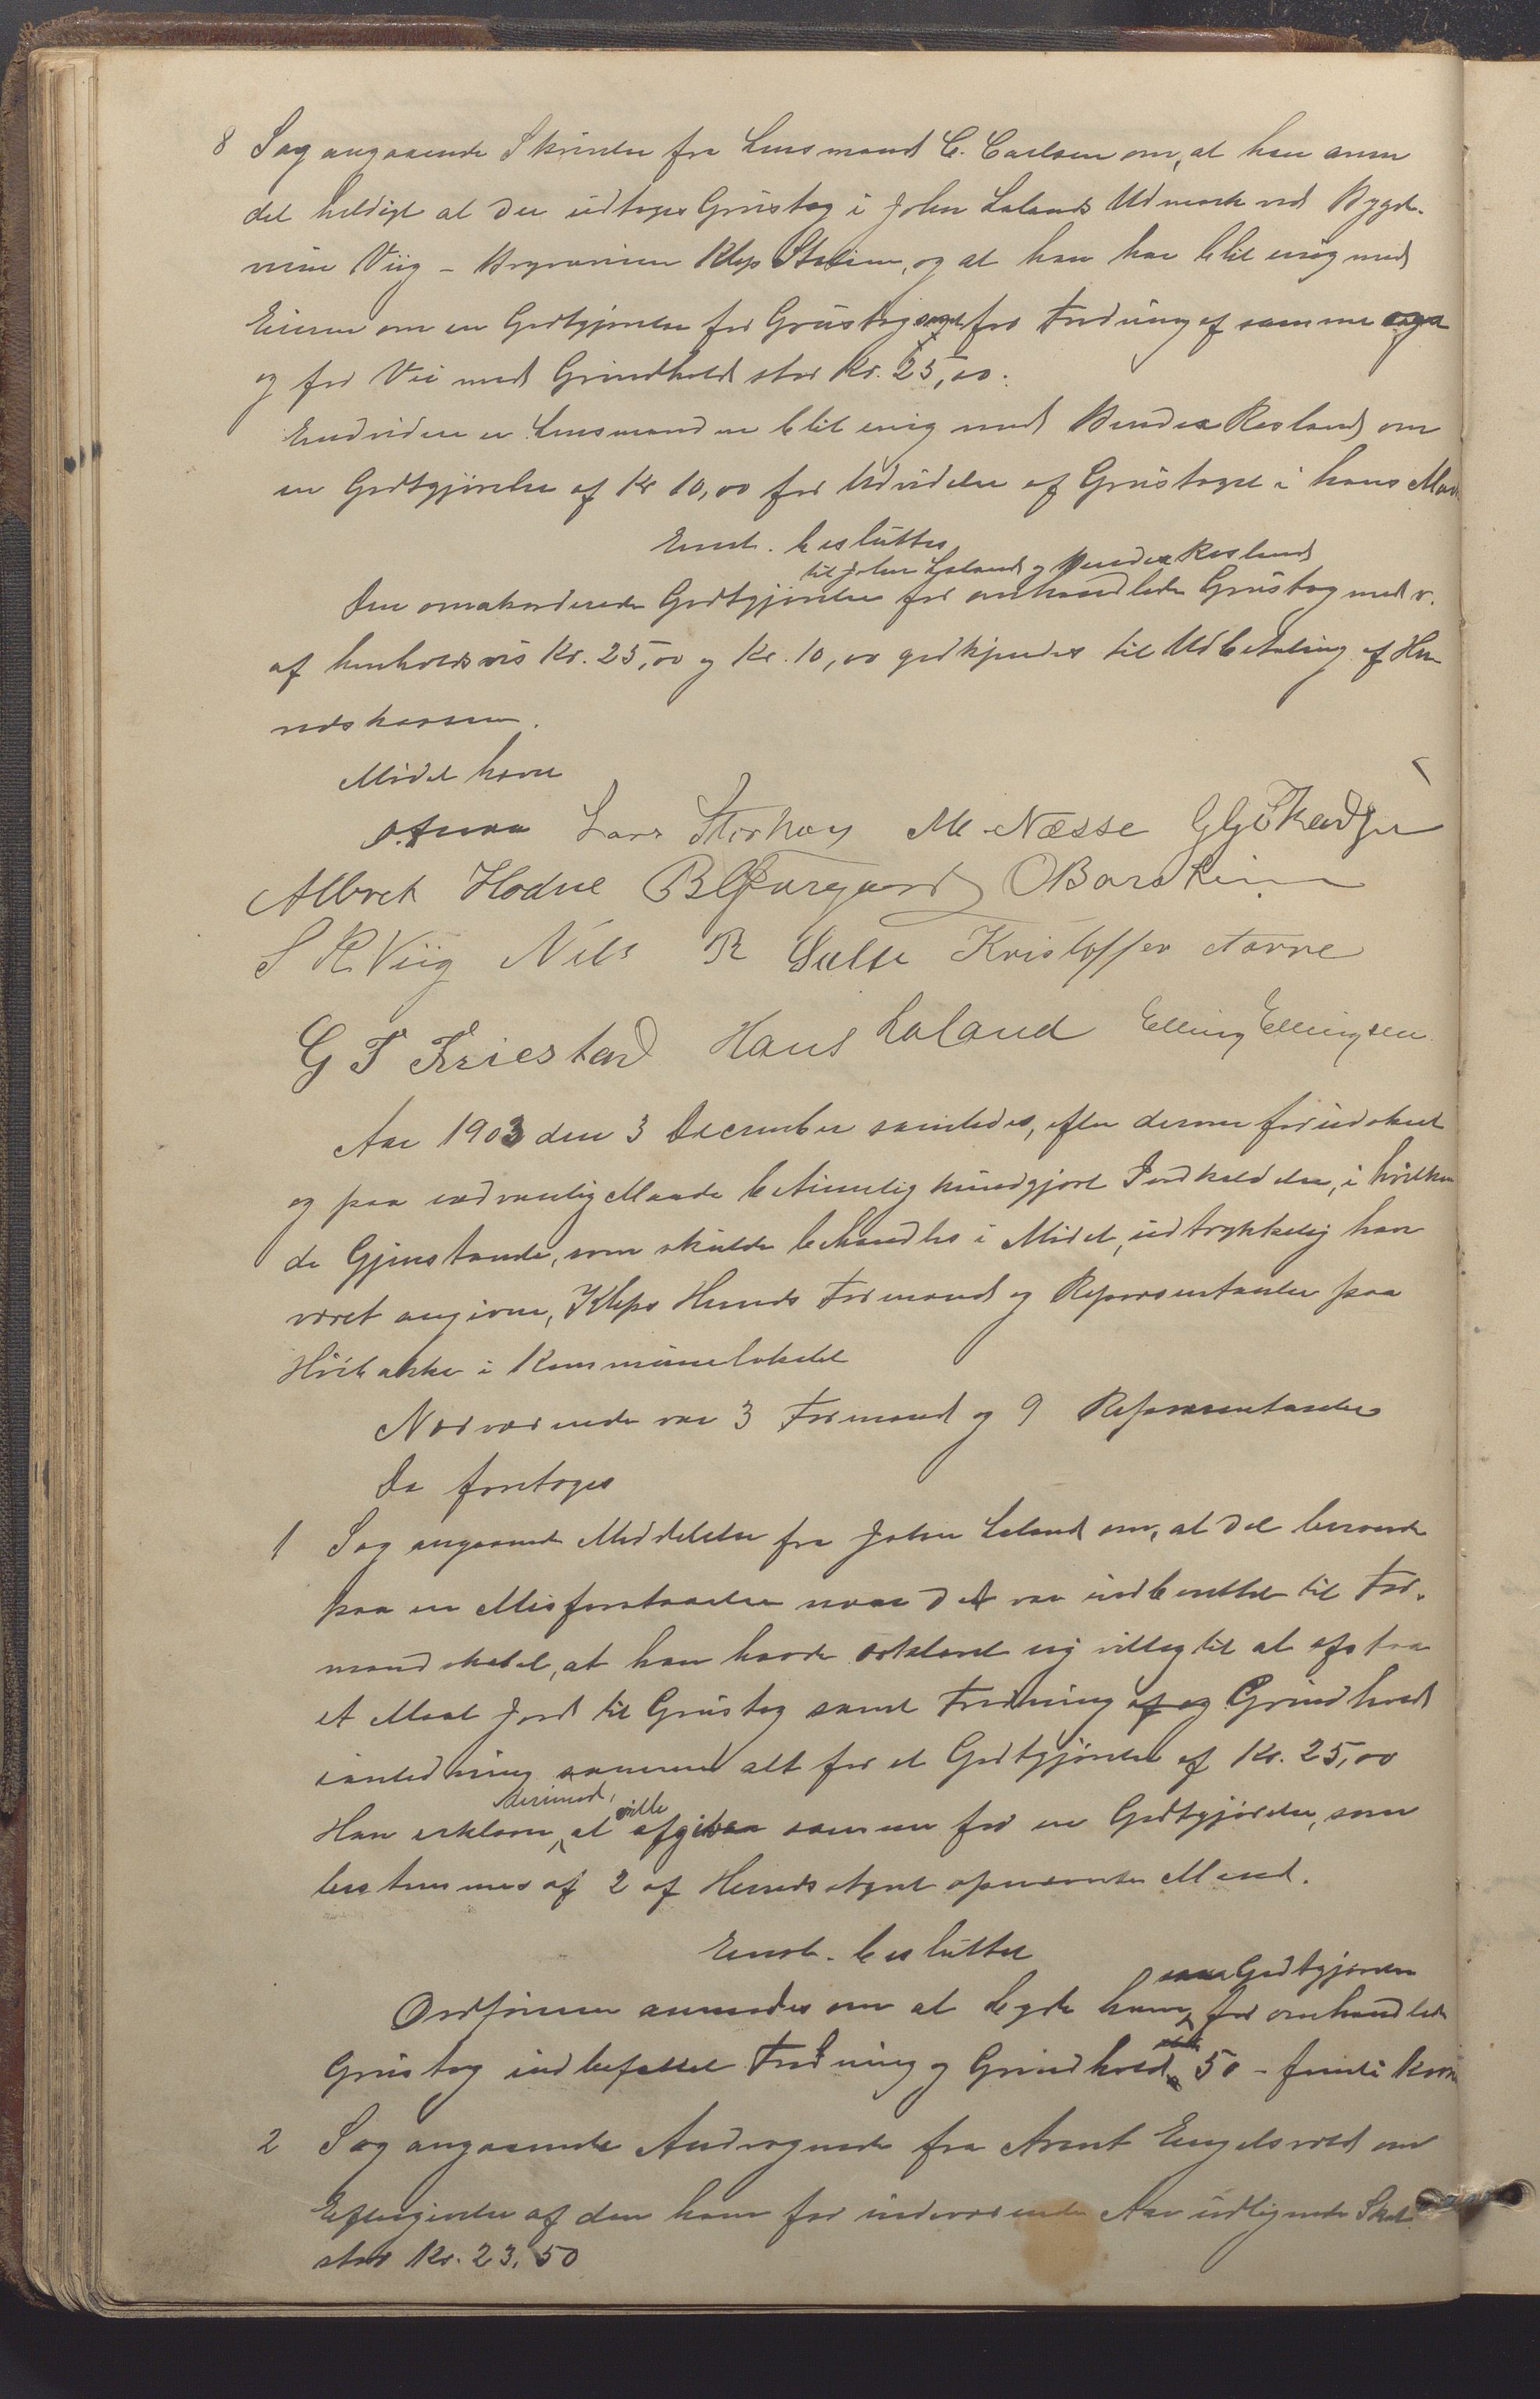 8 Sag angaaende Skrivelse fra Lensmand C. Carlsen om, at han anser
det heldigt at der udtages Grustag i John Lalands Udmark ved Bygde-
veien Viig - Kleps Station, og at han har blit enig med
Eieren om en Godtgjørelse for Grustag for Fredning af samme
og for Vei med Grindhold stor Kr. 25,00.
Endvidere er Lensmanden blit enig med Rosland om
en Godtgjørelse af Kr 10,00 for Udvidelse af Grustaget i hans Mark
Enst. besluttes
til John Laland og Roslund
Den omakorderede Godtgjørelse for omhandlede Grustag med v.
af henholdsvis Kr. 25,00 og Kr. 10,00 godkjendes til Udbetaling af Her-
redskassen.
Mødet hævet
Lars Storhoug M. Næsse
Albret Hodne OBorsheim
S R Viig Nils R Salte Kristoffer Tarne
G T Friestad Hans Laland Elling Ellingsen
Aar 1903 den 3 December samledes, efter dernee forudskeet
og paa sædvanlig Maade betimelig kundgjort Indkaldelse, i hvilken
de Gjenstande, som skulde behandles i Mødet, udtrykkelig har
været angivne, Kleps Herreds Formænd og Repræsentanter paa
i Kommunelokalet
Nærværende var 3 Formænd og 9 Repræsentanter
Da foretoges
1 Sag angaaende Meddelelse fra John Laland om, at det beroede
paa en Misforstaaelse naar det var indberettet til For-
mandskabet, at han havde erklæret sig villig til at afstaa
et Maal Jord til Grustag samt Fredning af og Grindhold
alt for et Godtgjørelse af Kr. 25,00
derimod, ville
Han erklærer, at afgive samme for en Godtgjørelse, som
bestemmes af 2 af Herredsstyret opnævnte Mænd.
Enst. besluttet
Godtgjørelse
Ordføreren anmodes om at byde ham for omhandlede
Grustag indbefattet Fredning og Grindhold 50 - femti Kroner
2 Sag angaaende Andragende fra Arent Engelsvold om
Eftergivelse af den ham for indeværende Aar udlignede Skat
stor Kr. 23,50